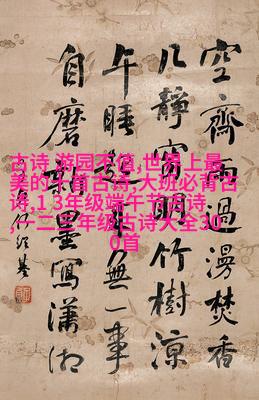 空齋雨過漫焚香
几靜窗明竹樹涼
午睡起來無一事
自磨墨寫瀟湘
古诗 游园不值,世界上最
美的十首古诗,大班必背古
诗,1 3年级端午节古诗
,一二三年级古诗大全30
0首